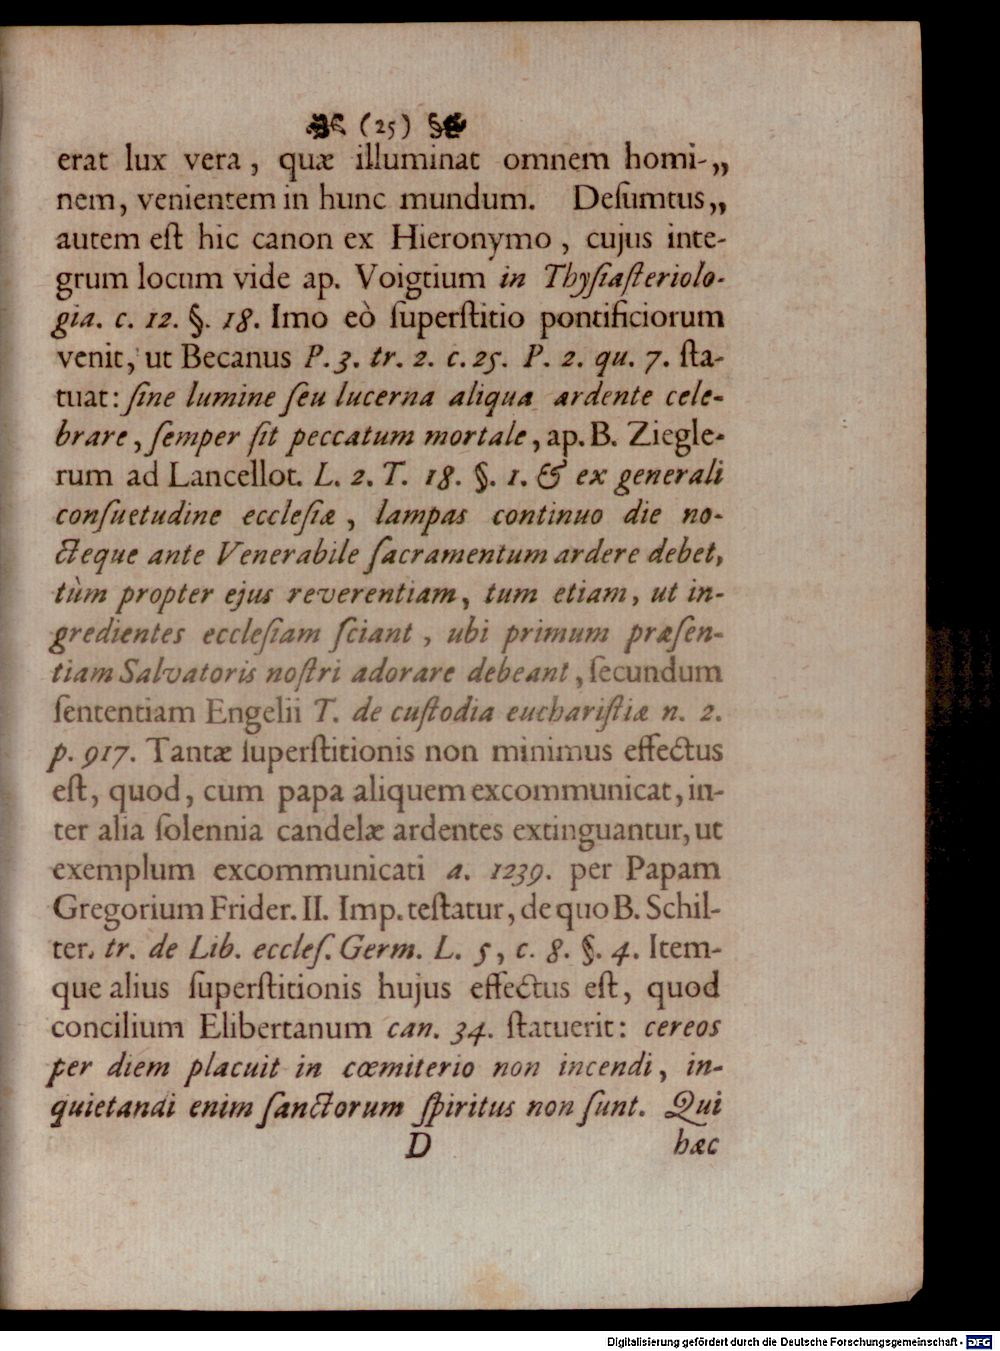 (25)
erat lux vera, quæ illuminat omnem homi-„
nem, venientem in hunc mundum. Deſumtus„
autem eſt hic canon ex Hieronymo, cujus inte-
grum locum vide ap. Voigtium in Thyſiaſteriolo-
gia. c. 12. §. 18. Imo eò ſuperſtitio pontificiorum
venit, ut Becanus P. 3. tr. 2. c. 25. P. 2. qu. 7. ſta-
tuat: ſine lumine ſeu lucerna aliqua ardente cele-
brare, ſemper ſit peccatum mortale, ap. B. Ziegle-
rum ad Lancellot. L. 2. T. 18. §. 1. & ex generali
conſuetudine eccleſiæ, lampas continuo die no-
cteque ante Venerabile ſacramentum ardere debet,
tùm propter ejus reverentiam, tum etiam, ut in-
gredientes eccleſiam ſciant, ubi primum præſen-
tiam Salvatoris noſtri adorare debeant, ſecundum
ſententiam Engelii T. de cuſtodia euchariſtiæ n. 2.
p. 917. Tantæ ſuperſtitionis non minimus effectus
eſt, quod, cum papa aliquem excommunicat, in-
ter alia ſolennia candelæ ardentes extinguantur, ut
exemplum excommunicati a. 1239. per Papam
Gregorium Frider. II. Imp. teſtatur, de quo B. Schil-
ter. tr. de Lib. eccleſ. Germ. L. 5, c. 8. §. 4. Item-
que alius ſuperſtitionis hujus effectus eſt, quod
concilium Elibertanum can. 34. ſtatuerit: cereos
per diem placuit in cœmiterio non incendi, in-
quietandi enim ſanctorum ſpiritus non ſunt. Qui
D hæc
Digitalisierung gefördert durch die Deutsche Forschungsgemeinschaft - DFG